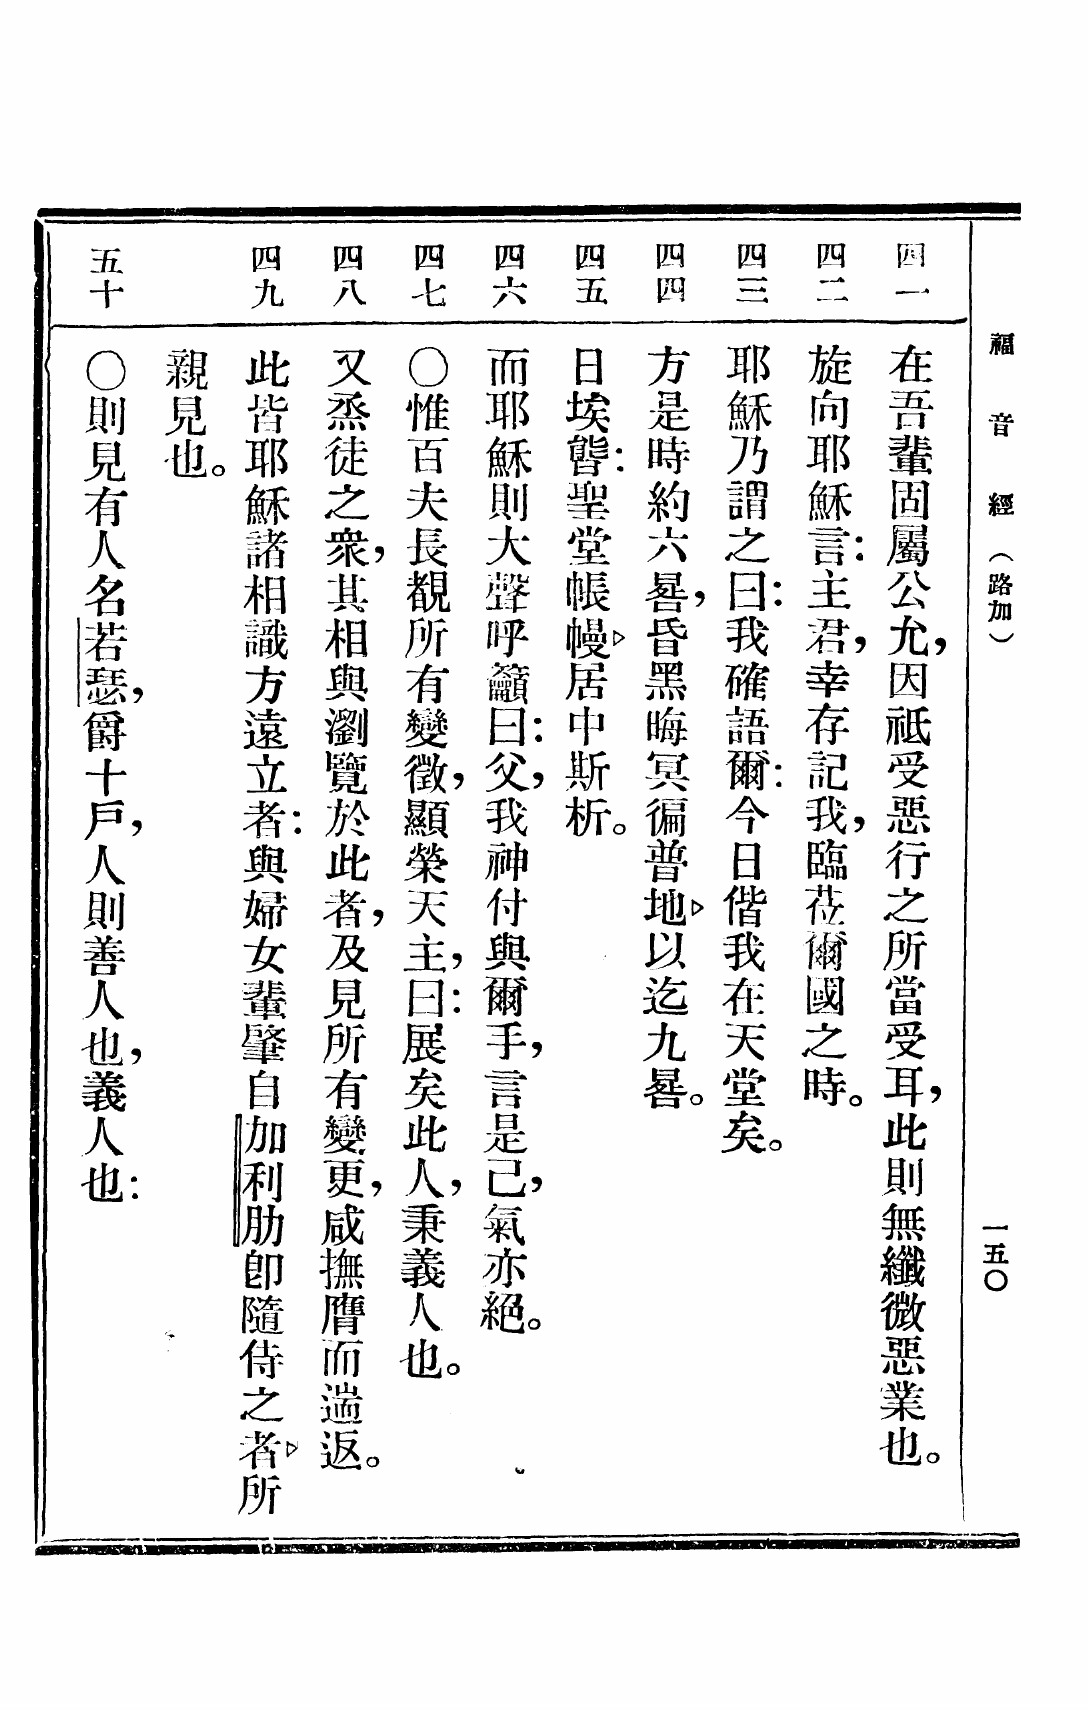 福音經（路加）
一五〇
四一 在吾輩固屬公允，因祗受惡行之所當受耳，此則無纖微惡業也。
四二 旋向耶穌言：主君，幸存記我，臨莅爾國之時。
四三 耶穌乃謂之曰：我確語爾：今日偕我在天堂矣。
四四 方是時約六晷，昏黑晦冥徧普地▷以迄九晷。
四五 日埃聟：聖堂帳幔▷居中斯析。
四六 而耶穌則大聲呼籲曰：父，我神付與爾手，言是已，氣亦絕。
四七 〇惟百夫長覩所有變徵，顯榮天主，曰：展矣此人，秉義人也。
四八 又烝徒之衆，其相與瀏覽於此者，及見所有變更，咸撫膺而遄返。
四九 此皆耶穌諸相識方遠立者：與婦女輩肇自加利肋卽隨侍之者▷所
親見也。
五十 〇則見有人名若瑟，爵十戶，人則善人也，義人也：